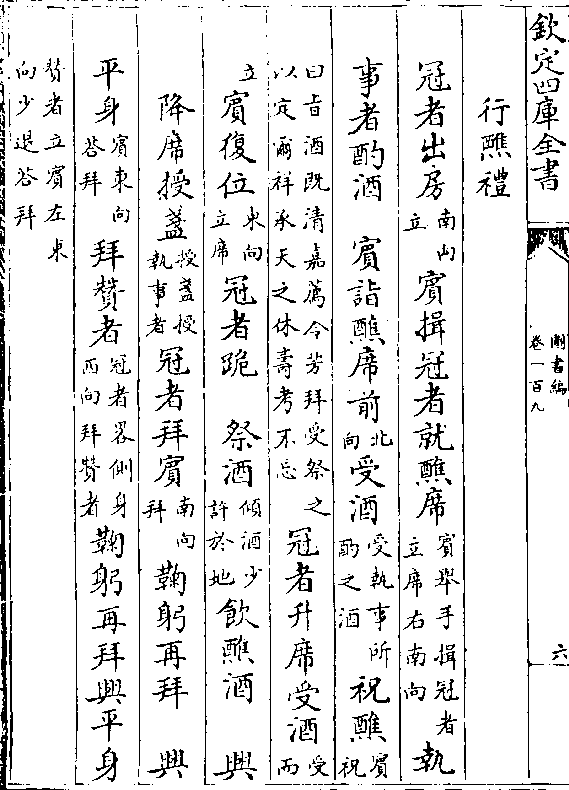 欽定四庫全書
圖書編
卷一百九
六
行醮禮
冠者出房南向立賓揖冠者就醮席賓舉手揖冠者立席右南向執
事者酌酒 賓詣醮席前北向受酒受執事所酌之酒祝醮賓祝
曰旨酒既清嘉薦令芳拜受祭之以定爾祥承天之休壽考不忘冠者升席受酒受而
立賓復位東向立席冠者跪 祭酒傾酒少許於地飲醮酒 興
降席授盞授盞授執事者冠者拜賓南向拜鞠躬再拜 興
平身賓東向答拜拜贊者冠者畧側身西向拜贊者鞠躬再拜興平身
贊者立賓左東向少退答拜